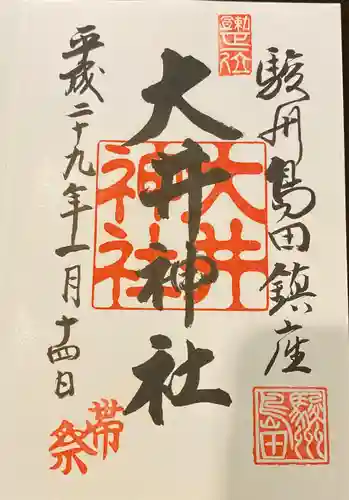 勅宣正一位
駿州島田鎮座
駿州島田
大井神社
大井神社
平成二十九年一月十四日
帯祭